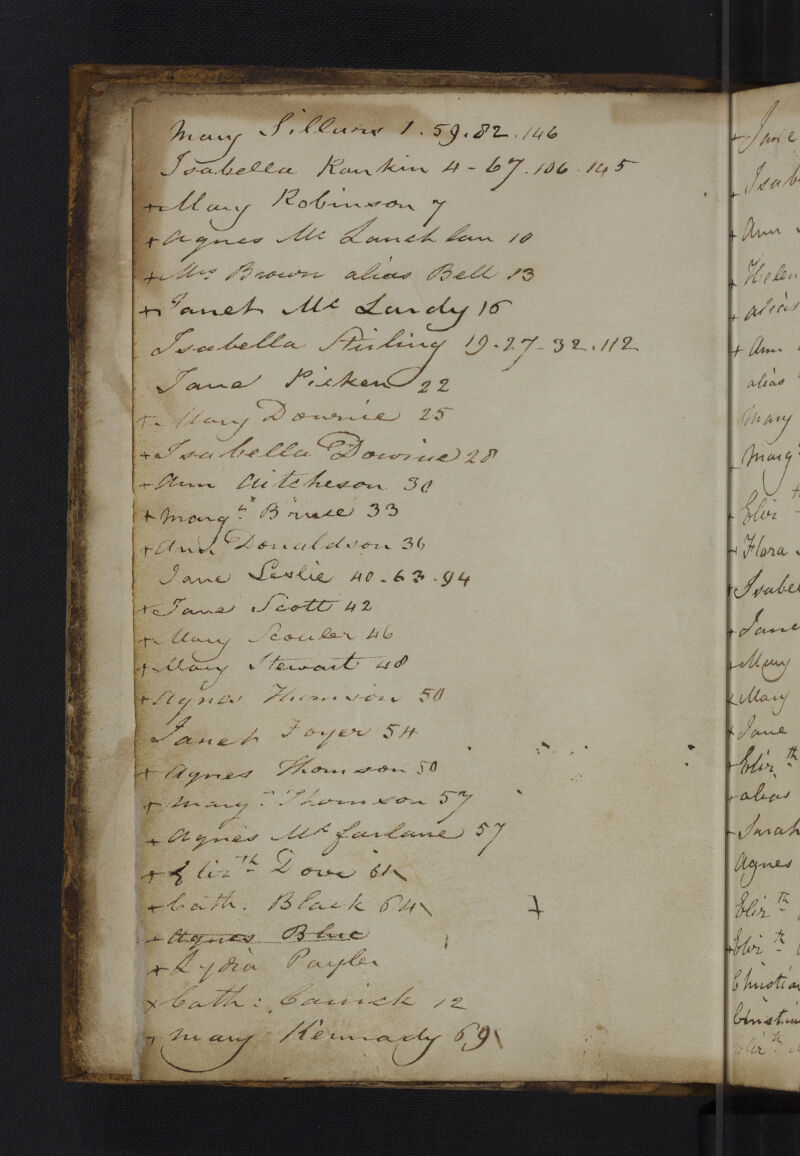 Mary Sillars 1. 59. 82. 146
Isabella Rankin 4 - 67. 106. 145
+ Mary Robinson 7
+ Agnes Mc Lauchlan 10
+ Mrs Brown alias Bell 13
+ Janet Mc Lardy 16
Isabella Stirling 19. 27 - 32. 112
Jane Picken 22
+ Mary Downie 25
+ Isabella Downie 28
+ Ann Aitcheson 30
+ Margt Bruce 33
+ Ann Donaldson 36
Jane Leslie 40. 63. 94
+ Jane Scott 42
+ Mary Scouler 46
+ Mary Stewart 48
+ Agnes Thomson 50
Janet Foyer 54
+ Agnes Thomson 50
+ Margt Thomson 57
+ Agnes Mc farlane 57
+ Elizth Dove 61
+ Cath: Black 64
+ Agnes Blue
+ Lydia Payler
x Cath: 12
+ Mary Kennady 69
+ Jane
+
+ Ann
+ Helen
+ alias
+ Ann
alias
Mary
+ Elizth
+ Flora
+
+ Jane
+ Mary
+ Mary
+ Jane
+ Elizth
+ alias
+ Sarah
Agnes
Elizth
+ Elizth